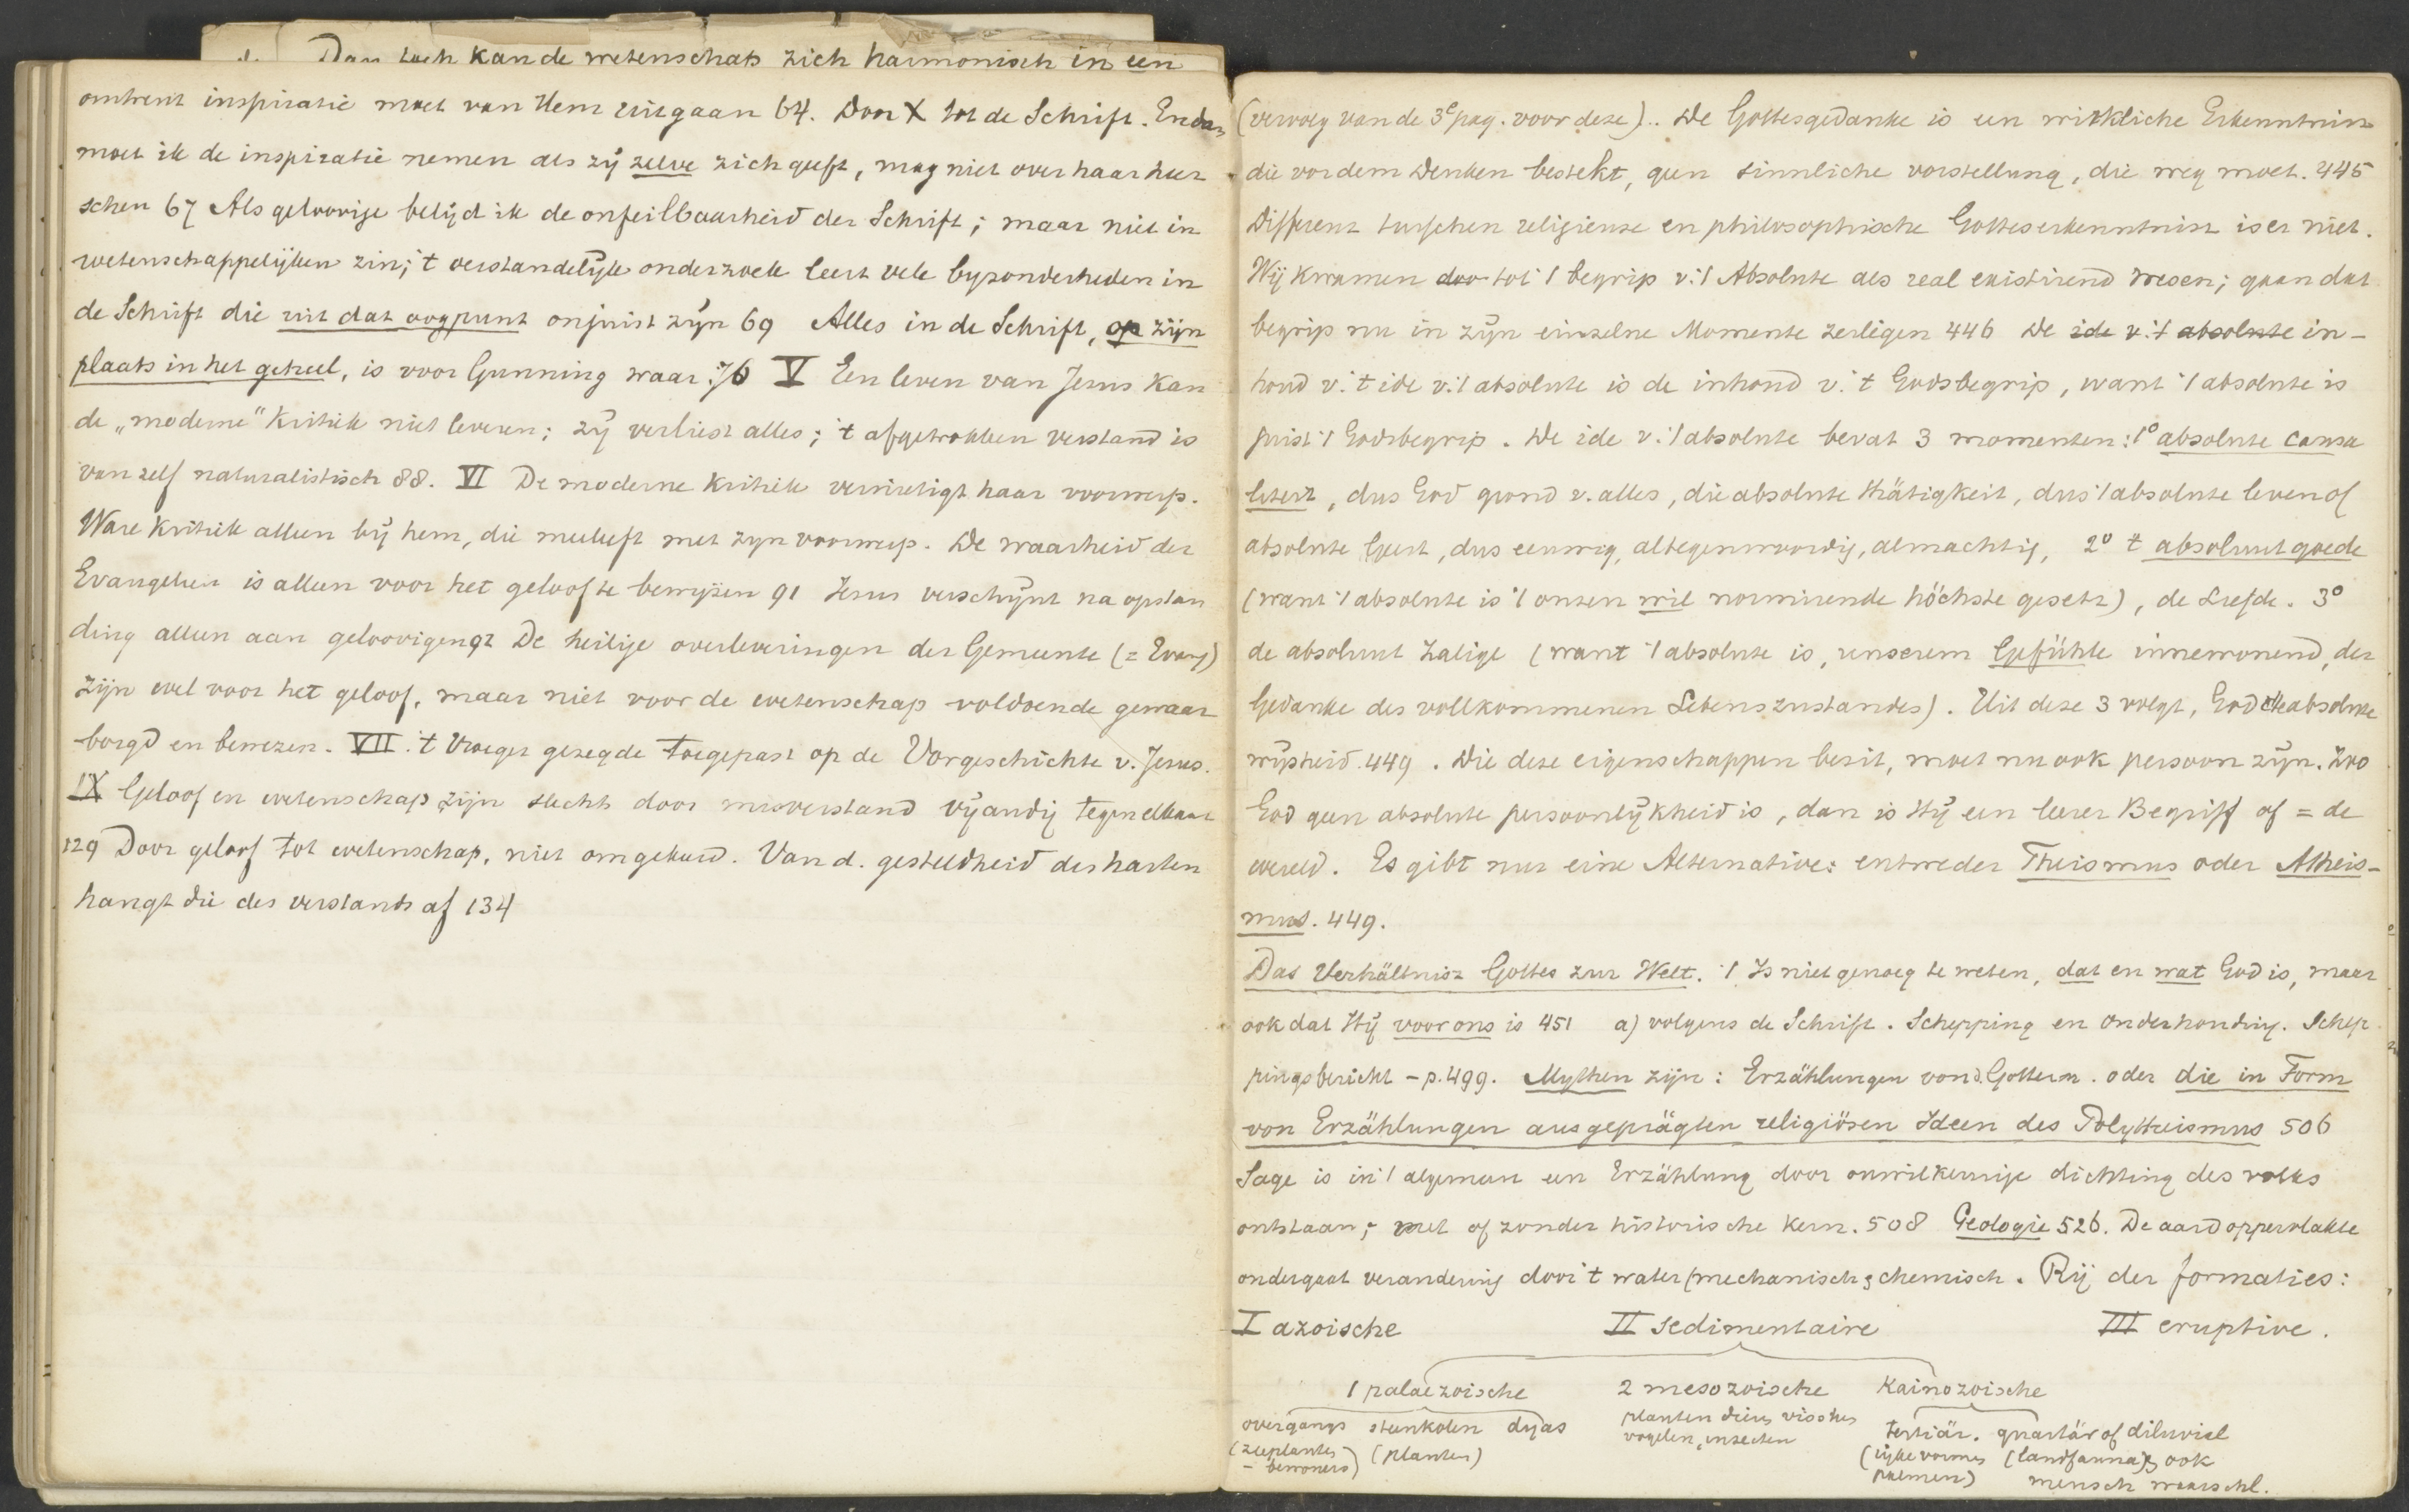 Dan toch kan de wetenschap zich harmonisch in een
omtrent inspiratie moet van Hem uitgaan 64. Door X tot de Schrift. En dan
moet ik de inspiratie nemen als zij zelve zich geeft, mag niet over haar heer
schen 67 Als geloovige belijd ik de onfeilbaarheid der Schrift; maar niet in
wetenschappelijken zin; 't verstandelijk onderzoek leert vele byzonderheden in
de Schrift die uit dat oogpunt onjuist zijn 69 Alles in de Schrift, op zijn
plaats in het geheel, is voor Gunning waar. 76 V Een leven van Jezus kan
de „moderne" kritiek niet leveren; zij verliest alles; 't afgetrokken verstand is
van zelf naturalistisch 88. VI De moderne kritiek vernietigt haar voorwerp.
Ware kritiek alleen bij hem, die meeleeft met zyn voorwerp. De waarheid der
Evangelien is alleen voor het geloof te bewijzen 91 Jezus verschijnt na opstan
ding alleen aan geloovigen 92 De heilige overleveringen der Gemeente (= Evang)
zijn wel voor het geloof, maar niet voor de wetenschap voldoende gewaar
borgd en bewezen. VII. 't Vroeger gezegde toegepast op de Vorgeschichte v. Jezus.
IX Geloof en wetenschap zijn slechts door misverstand vijandig tegen elkaar
129 Door geloof tot wetenschap, niet omgekeerd. Van d. gesteldheid des harten
hangt die des verstands af 134
(vervolg van de 3e pag. voor deze). De Gottesgedanke is een wirkliche Erkenntniss
die vor dem Denken besteht, geen sinnliche vorstellung, die weg moet. 445
Differenz tusschen religieuse en philosophische Gotteserkenntniss is er niet.
Wij kwamen doo tot 't begrip v. 't Absolute als real existirend wesen; gaan dat
begrip nu in zijn einzelne Momente zerlegen 446 De ide v. 't absolute in-
houd v. 't ide v. 't absolute is de inhoud v. 't Godsbegrip, want 't absolute is
juist 't Godsbegrip. De ide v. 't absolute bevat 3 momenten: 1° absolute causa
liteit, dus God grond v. alles, die absolute thätigkeit, dus 't absolute leven of
absolute Geest, dus eeuwig, altegenwoordig, almachtig, 2° 't absoluut goede
(want 't absolute is 't onzen wil normirende höchste gesetz), de Liefde. 3°
de absoluut Zalige (want 't absolute is, unserem Gefühle innewonend, der
Gedanke des vollkommenen Lebenszustandes). Uit deze 3 volgt, God de absolute
wijsheid. 449. Die deze eigenschappen bezit, moet nu ook persoon zijn. Zoo
God geen absolute persoonlijkheid is, dan is Hij een leerer Begriff of = de
wereld. Es gibt nur eine Alternative: entweder Theismus oder Atheis-
mus. 449.
Das Verhältniss Gottes zur Welt. 't Is niet genoeg te weten, dat en wat God is, maar
ook dat Hij voor ons is 451 a) volgens de Schrift. Schepping en onderhouding. Schep
pingsbericht - p. 499. Mythen zijn: Erzählungen von d. Gottern. oder die in Form
von Erzählungen ausgeprägten religiösen Ideen des Polytheismus 506
Sage is in 't algemeen een Erzählung door onwillekeurige dichting des volks
ontstaan; met of zonder historische kern. 508 Geologie 526. De aardoppervlakte
ondergaat verandering door 't water (mechanisch & chemisch. Rij der formaties:
I azoische II sedimentaire III eruptive.
1 palaezoische 2 mesozoische Kainozoische
overgangs steenkolen dyas planten dieren visschen vogelen, insecten tertiär. quartär of diluviel
(zeeplanten - bewoners) (planten) (rijke vormen palmen) (landfauna) & ook
mensch waarschl.